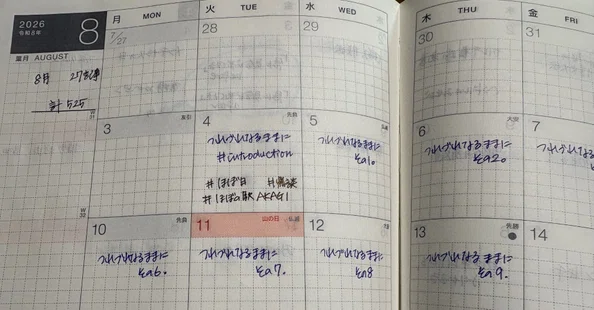 2026
令和8年
8
葉月 AUGUST
月 MON
火 TUE
水 WED
木 THU
金 FRI
8月 27記事
計 525
7/27
28
29
30
31
W
31
3
友引
4
先負
つれづれなるままに
#introduction
#ほぼ日 #帰談
#ほぼの駅AKAGI
5
仏滅
つれづれなるままに
その1。
6
大安
つれづれなるままに
その2。
7
つれづれなるままに
W
32
10
先負
つれづれなるままに
その6。
11
山の日 仏滅
つれづれなるままに
その7。
12
つれづれなるままに
その8
13
先勝
つれづれなるままに
その9。
14